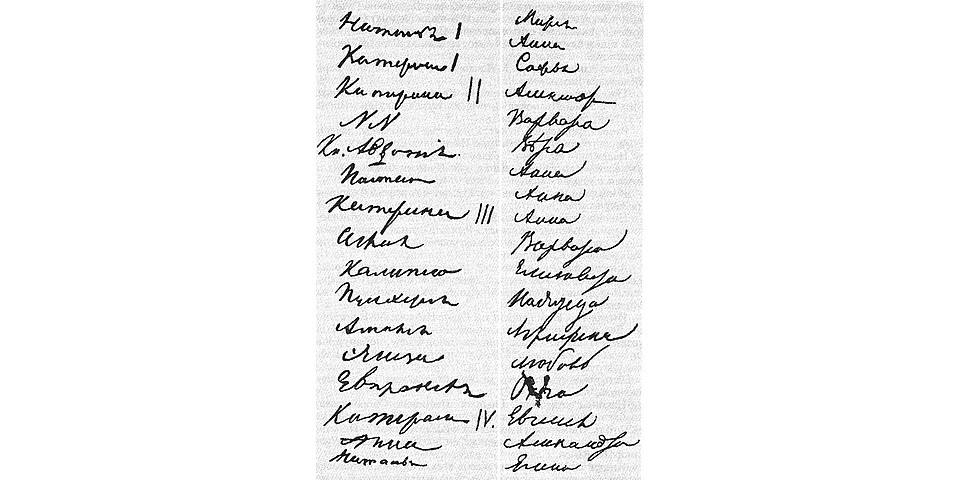 Наталья I
Катерина I
Катерина II
NN
Кн. Авдотия.
Настасья
Катерина III
Аглая
Калипсо
Пульхерия
Амалия
Элиза
Евпраксея
Катерина IV.
Анна
Наталья
Мария
Анна
Софья
Александра
Варвара
Вѣра
Анна
Анна
Анна
Варвара
Елизавета
Надежда
Аграфена
Любовь
Ольга
Евгения
Александра
Елена